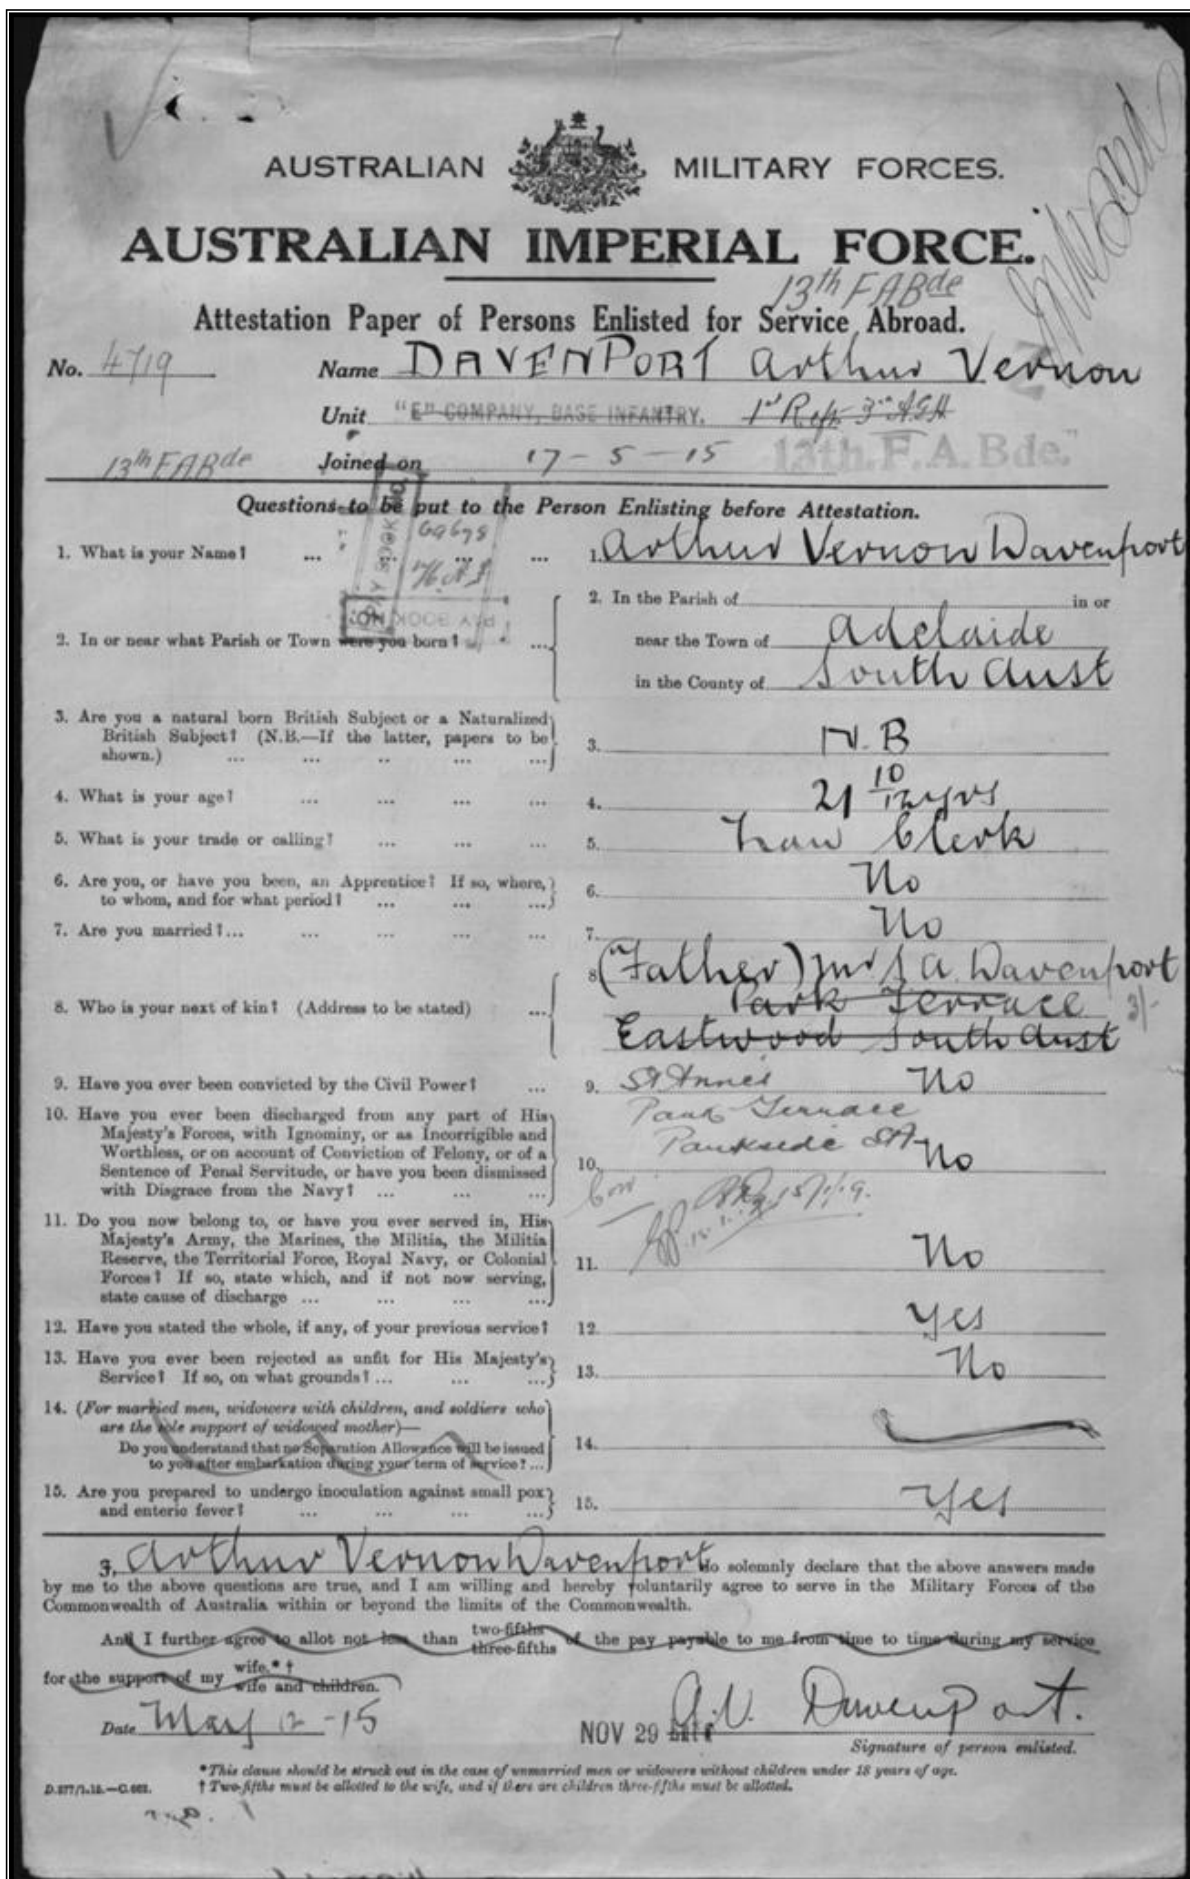 AUSTRALIAN MILITARY FORCES.
AUSTRALIAN IMPERIAL FORCE.
13th FABde
Attestation Paper of Persons Enlisted for Service Abroad.
No. 4719 Name DAVENPORT Arthur Vernon
Unit "E" COMPANY, BASE INFANTRY. 1st Refts 3rd A.G.H
13th FABde Joined on 17-5-15 13th. F. A. Bde.
Questions to be put to the Person Enlisting before Attestation.
PAY BOOK NO.
69678
PAY BOOK NO.
1. What is your Name? ... ... ... 1. Arthur Vernon Davenport
2. In or near what Parish or Town were you born? ... 2. In the Parish of in or
near the Town of Adelaide
in the County of South Aust
3. Are you a natural born British Subject or a Naturalized
British Subject? (N.B.—If the latter, papers to be
shown.) ... ... ... ... ... 3. N.B
4. What is your age? ... ... ... ... 4. 21 10/12 yrs
5. What is your trade or calling? ... ... ... 5. Law Clerk
6. Are you, or have you been, an Apprentice? If so, where,
to whom, and for what period? ... ... ... 6. No
7. Are you married?... ... ... ... ... 7. No
8. Who is your next of kin? (Address to be stated) ... 8. (Father) Mr J A. Davenport
Park Terrace 3/-
Eastwood South Aust
9. Have you ever been convicted by the Civil Power? ... 9. St Annes No
Park Terrace
Parkside SA
10. Have you ever been discharged from any part of His
Majesty's Forces, with Ignominy, or as Incorrigible and
Worthless, or on account of Conviction of Felony, or of a
Sentence of Penal Servitude, or have you been dismissed
with Disgrace from the Navy? ... ... ... 10. No
15/1/19.
11. Do you now belong to, or have you ever served in, His
Majesty's Army, the Marines, the Militia, the Militia
Reserve, the Territorial Force, Royal Navy, or Colonial
Forces? If so, state which, and if not now serving,
state cause of discharge ... ... ... ... 11. No
12. Have you stated the whole, if any, of your previous service? 12. Yes
13. Have you ever been rejected as unfit for His Majesty's
Service? If so, on what grounds? ... ... ... 13. No
14. (For married men, widowers with children, and soldiers who
are the sole support of widowed mother)—
Do you understand that no Separation Allowance will be issued
to you after embarkation during your term of service? ... 14.
15. Are you prepared to undergo inoculation against small pox
and enteric fever? ... ... ... ... 15. Yes
I, Arthur Vernon Davenport do solemnly declare that the above answers made
by me to the above questions are true, and I am willing and hereby voluntarily agree to serve in the Military Forces of the
Commonwealth of Australia within or beyond the limits of the Commonwealth.
And I further agree to allot not less than two-fifths three-fifths of the pay payable to me from time to time during my service
for the support of my wife.*† wife and children.
Date May 12-15 NOV 29 A.V. Davenport.
Signature of person enlisted.
*This clause should be struck out in the case of unmarried men or widowers without children under 18 years of age.
D.577/1.15.—C.662. † Two-fifths must be allotted to the wife, and if there are children three-fifths must be allotted.